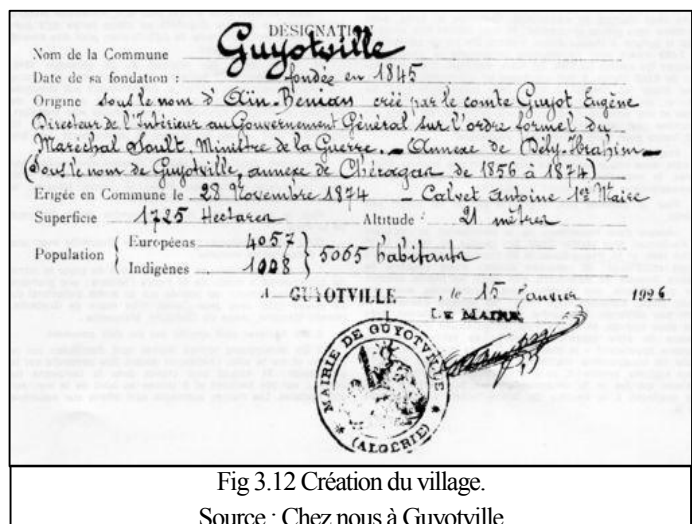 DÉSIGNATION
Nom de la Commune Guyotville
Date de sa fondation : fondée en 1845
Origine sous le nom d'Aïn-Benian créé par le comte Guyot Eugène
Directeur de l'Intérieur au Gouvernement Général sur l'ordre formel du
Maréchal Soult, Ministre de la Guerre. _ Annexe de Dély-Ibrahim _
(Sous le nom de Guyotville, annexe de Chéragas de 1856 à 1874)
Erigée en Commune le 28 Novembre 1874 _ Calvet Antoine 1er Maire
Superficie 1725 Hectares Altitude : 21 mètres
Population { Européens 4057 } 5065 habitants
Indigènes 1008
A GUYOTVILLE, le 15 Janvier 1926
LE MAIRE
MAIRIE DE GUYOTVILLE
* (ALGÉRIE) *
Fig 3.12 Création du village.
Source : Chez nous à Guyotville